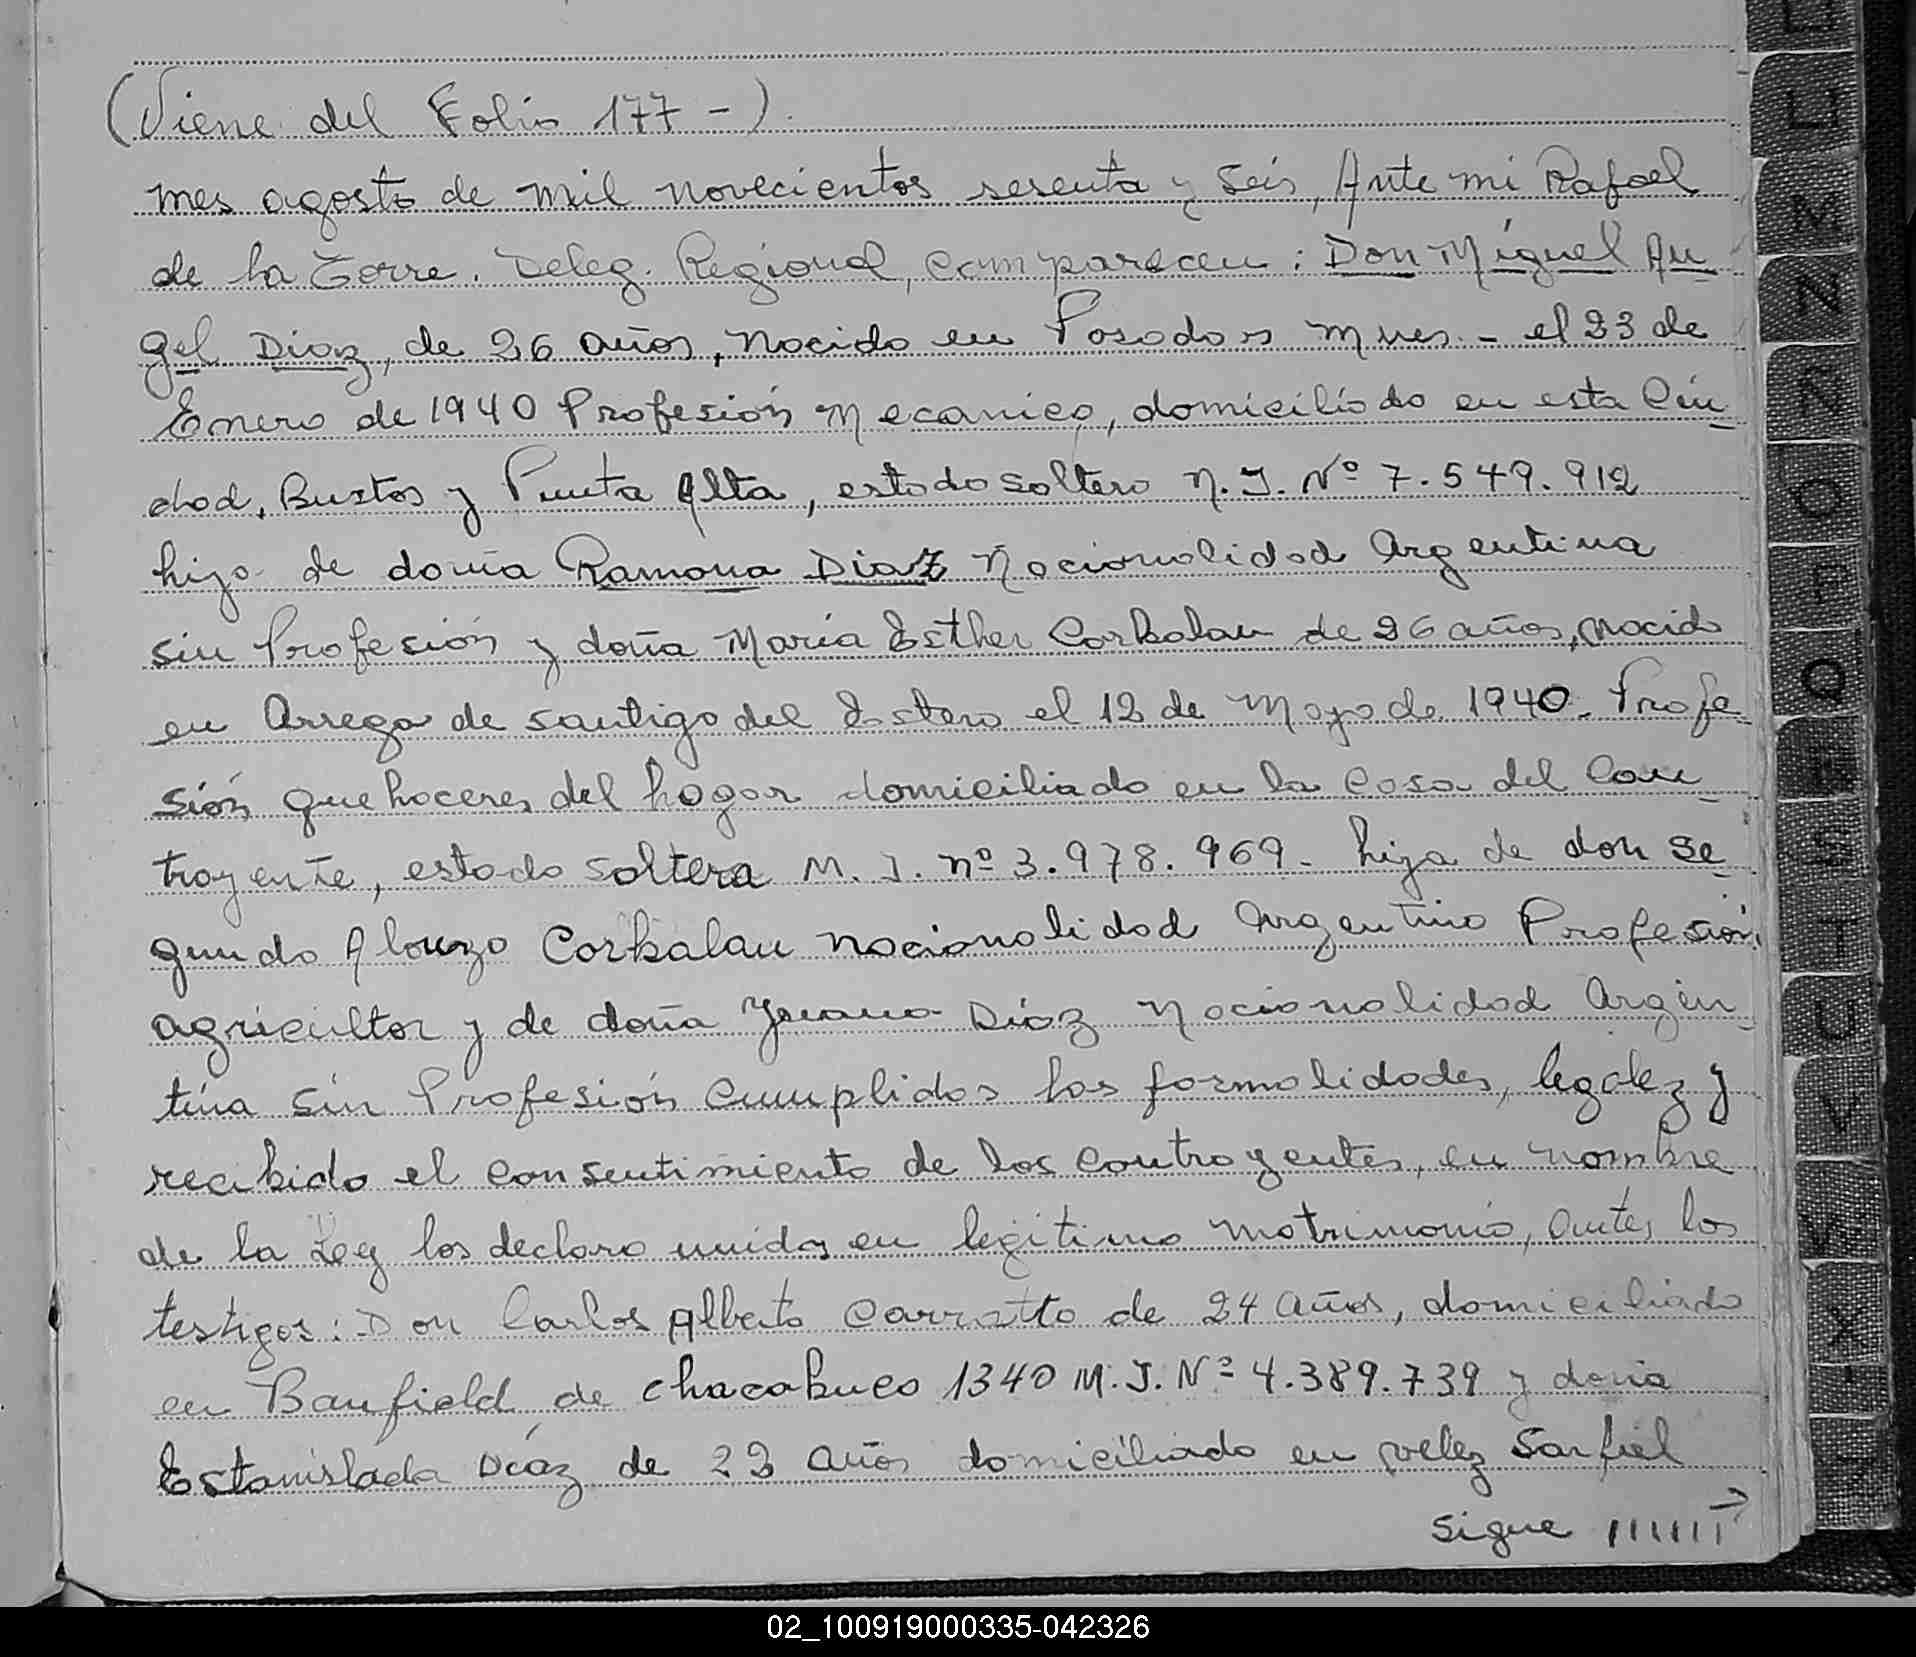 (Viene del Folio 177 -)
mes agosto de mil novecientos sesenta y seis, Ante mi Rafael
de la Torre. Deleg. Regional, comparecen: Don Miguel An
gel Diaz, de 26 años, nacido en Posadas Mnes. - el 23 de
Enero de 1940 Profesión Mecanico, domiciliado en esta Ciu
dad, Bustos y Punta Alta, estado soltero M.I. Nº 7.549.912
hijo de doña Ramona Diaz Nacionalidad Argentina
sin Profesión y doña Maria Esther Corbalan de 26 años, nacida
en Arraga de santigo del Estero el 12 de Mayo de 1940. Profe
sión quehaceres del hogar domiciliada en la casa del Con
trayente, estado soltera M.I. nº 3.978.969 - hija de don Se
gundo Alonzo Corbalan nacionalidad Argentino Profesión
agricultor y de doña Juana Diáz Nacionalidad Argen
tina sin Profesión Cumplidas las formalidades, legalez y
recibido el consentimiento de los contrayentes, en nombre
de la Ley los declaro unidos en legitimo Matrimonio, antes los
testigos: Don Carlos Alberto Carratto de 24 años, domiciliado
en Banfield de Chacabuco 1340 M.I. Nº 4.389.739 y doña
Estanislada Diáz de 23 años domiciliada en velez Sarfiel
sigue
LL
M
N
Ñ
O
P
Q
R
S
T
U
V
W
X
Y
02_100919000335-042326